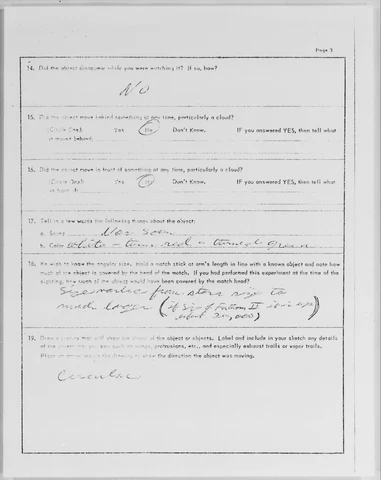 Page 3
14. Did the object disappear while you were watching it? If so, how?
No
15. Did the object move behind something at any time, particularly a cloud?
(Circle One) Yes No Don't Know. IF you answered YES, then tell what
it moved behind:
16. Did the object move in front of something at any time, particularly a cloud?
(Circle One) Yes No Don't Know. IF you answered YES, then tell what
17. Tell in a few words the following things about the object:
a. Sound
b. Color white - turn red - turned green
18. We wish to know the angular size. Hold a match stick at arm's length in line with a known object and note how
much of the object is covered by the head of the match. If you had performed this experiment at the time of the
sighting, how much of the object would have been covered by the match head?
from stars size to
much larger (if size of
19. Draw a picture that will show the shape of the object or objects. Label and include in your sketch any details
of the object that you saw such as wings, protrusions, etc., and especially exhaust trails or vapor trails.
Place an arrow beside the drawing to show the direction the object was moving.
Circular